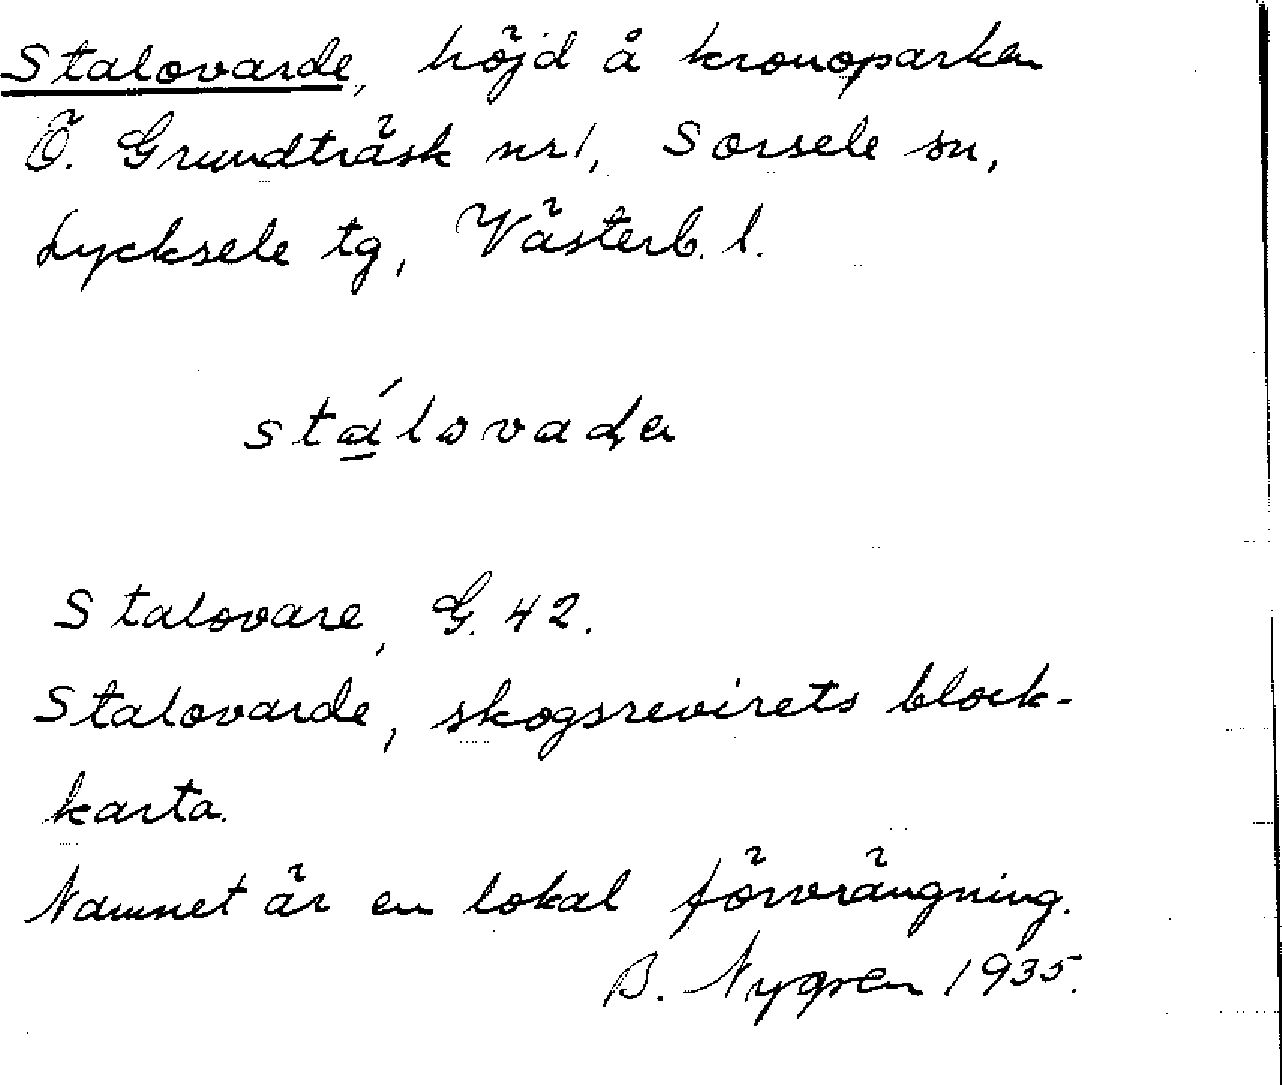 Stalovarde, höjd å kronoparken
Ö. Grundträsk nr 1, Sorsele sn,
Lycksele tg, Västerb. l.
stálovaḍa
Stalovare, G. 42.
Stalovarde, skogsrevirets block-
karta.
Namnet är en lokal förvrängning.
B. Nygren 1935.